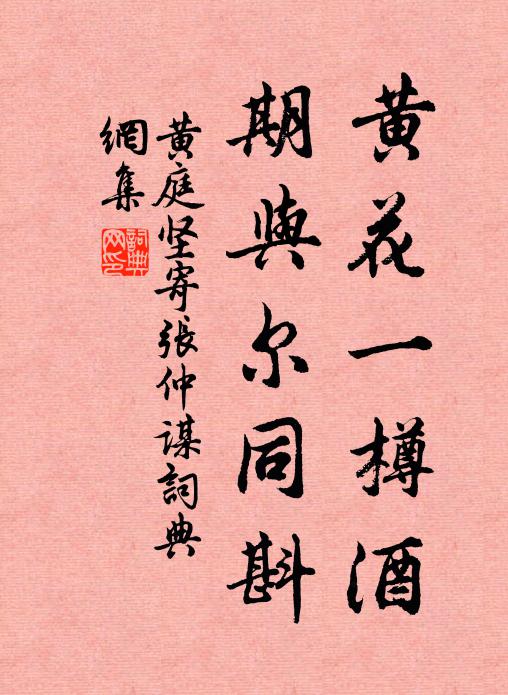 黄花一樽酒
期與尔同斟
黄庭坚寄張仲谋詞典
網集
詞典網印